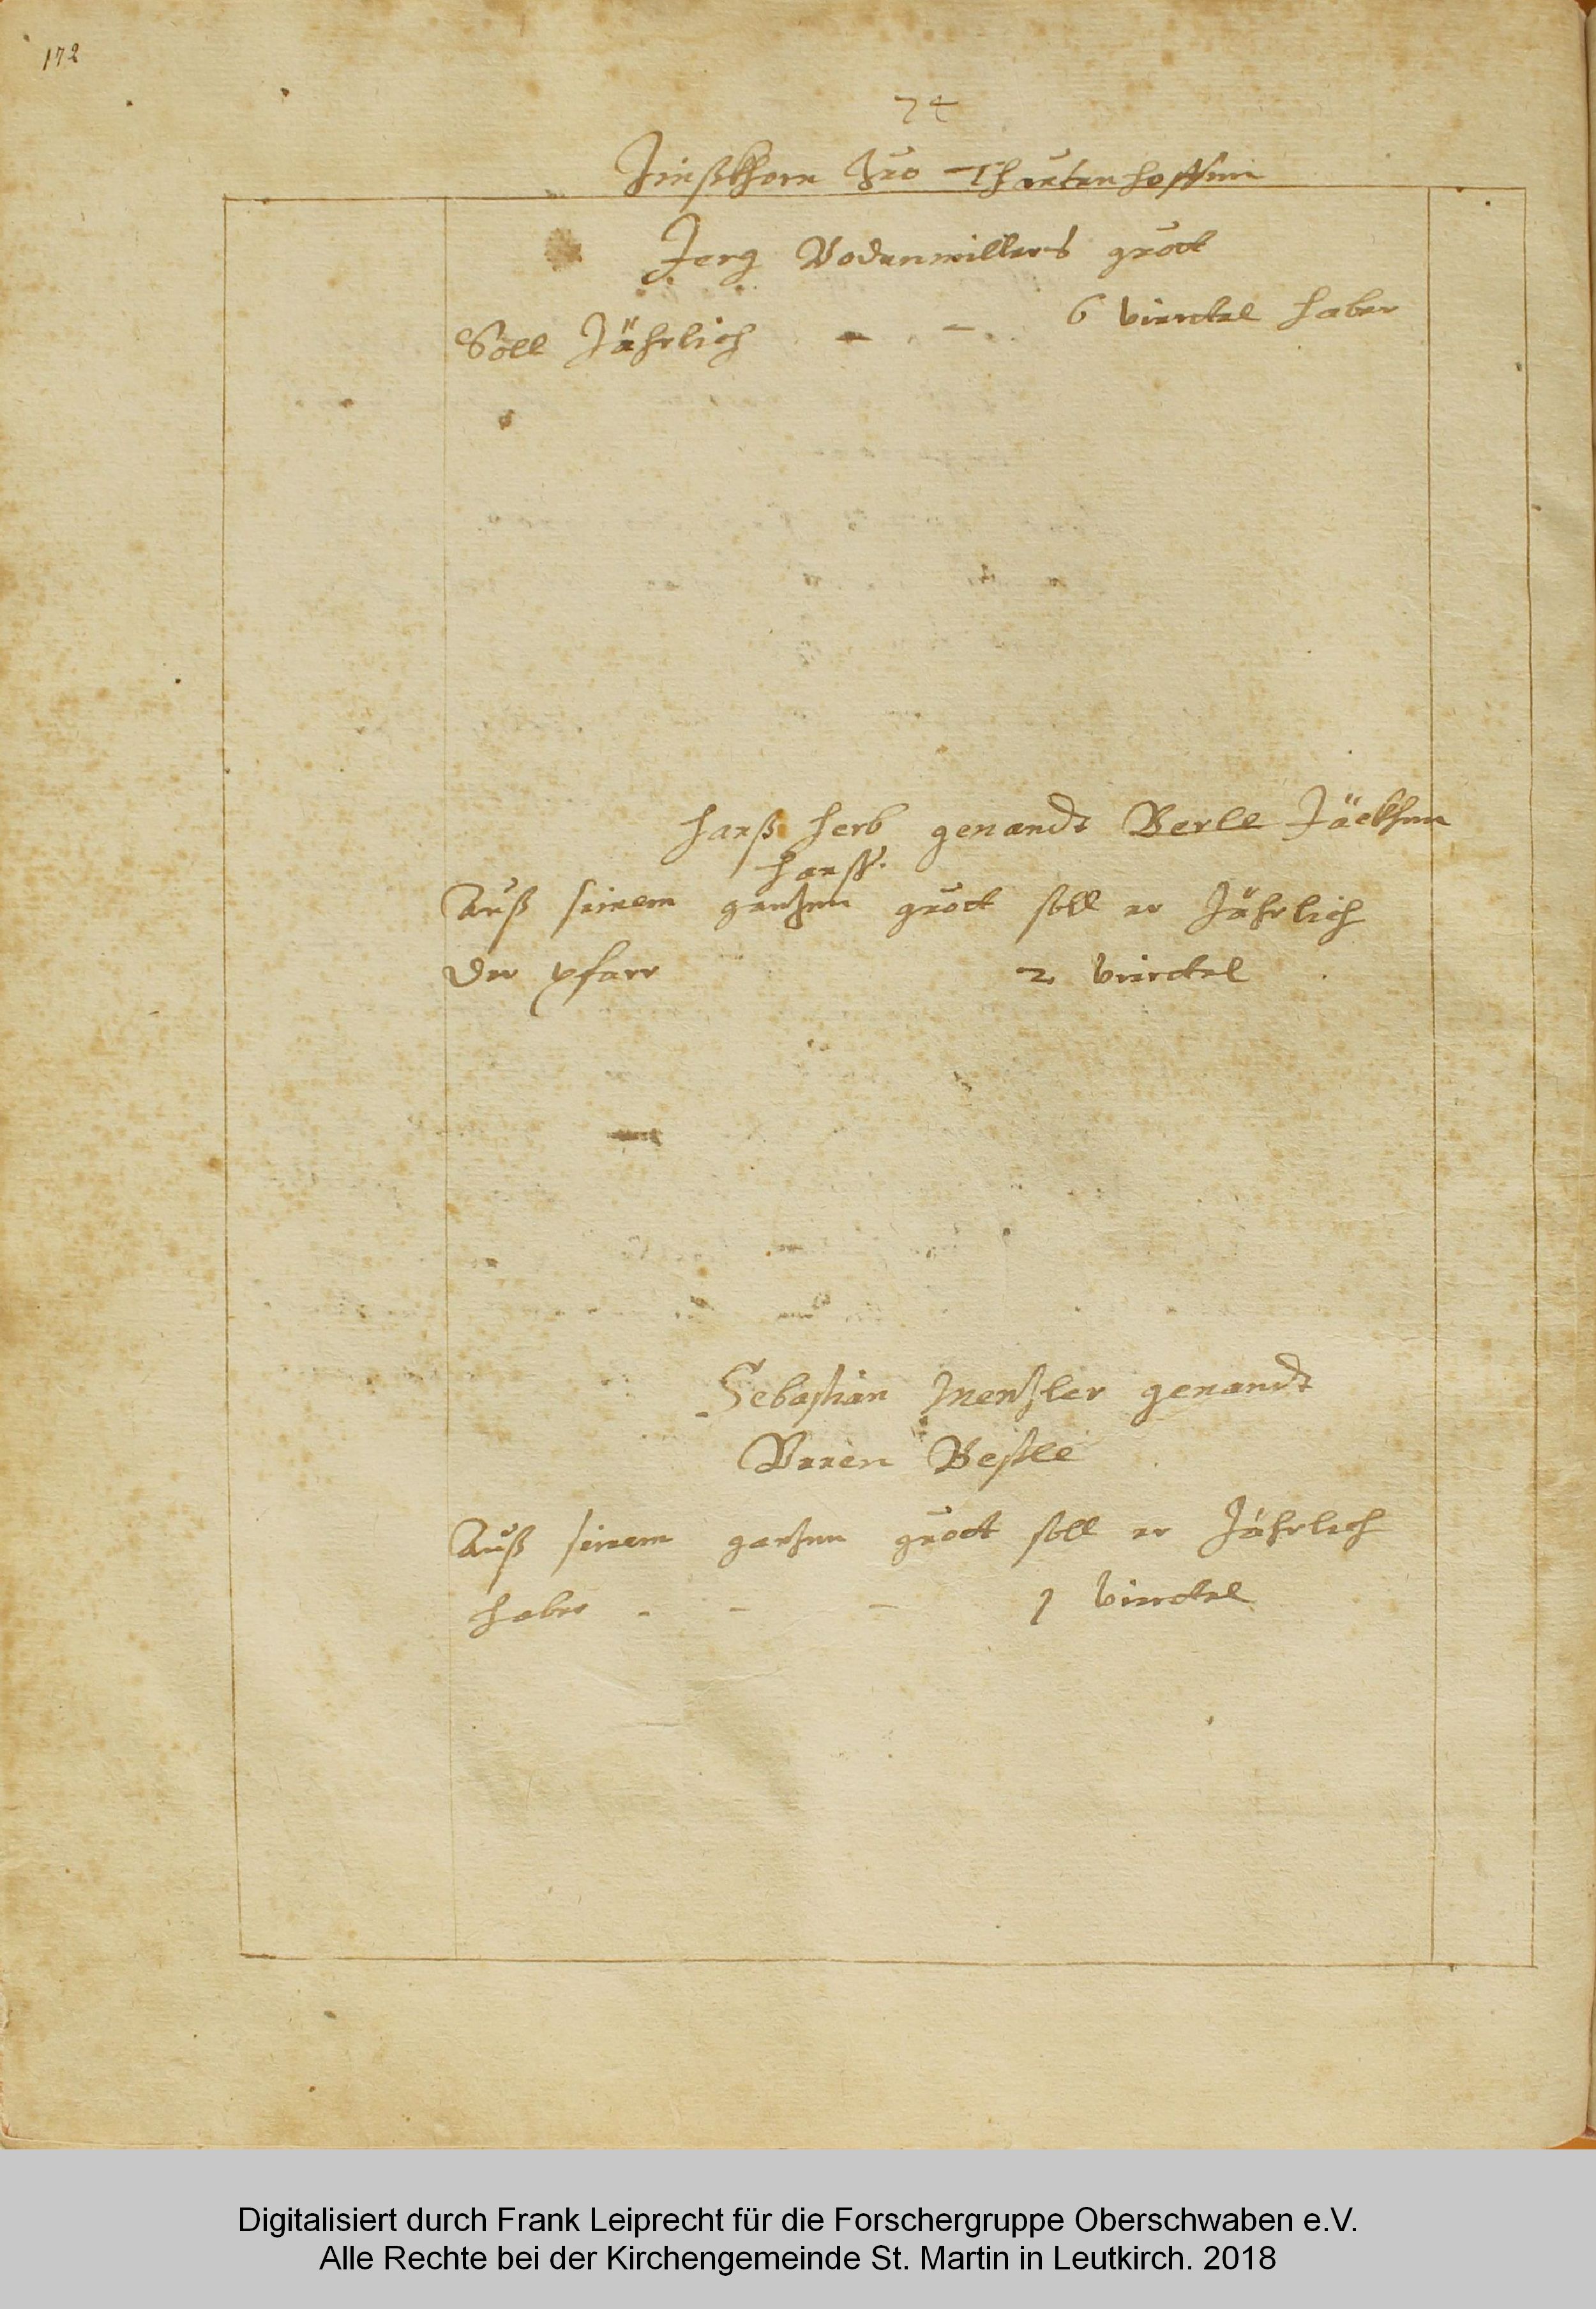 172
74
Zinßkhorn Zuo Thautenhoffen
Jerg Bodenmillers guott
Soll Jährlich - - 6 vierttel haber
Hanß Herb genandt Berle Jäckhen
Hanß.
Auß seinem gantzen guott soll er Jährlich
der pfarr 2 vierttel
Sebastian Mentzler genandt
Bestle
Auß seinem gantzen guott soll er Jährlich
haber - - - 1 vierttel
Digitalisiert durch Frank Leiprecht für die Forschergruppe Oberschwaben e.V.
Alle Rechte bei der Kirchengemeinde St. Martin in Leutkirch. 2018